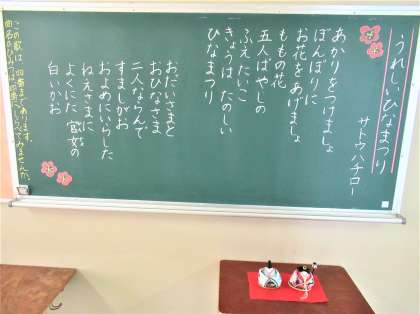 うれしいひなまつり
サトウハチロー
あかりをつけましょ
ぼんぼりに
お花をあげましょ
ももの花
五人ばやしの
ふえ たいこ
きょうは たのしい
ひなまつり
おだいりさまと
おひなさま
二人ならんで
すましがお
およめにいらした
ねえさまに
よくにた 官女の
白いかお
この歌は、四番まであります。